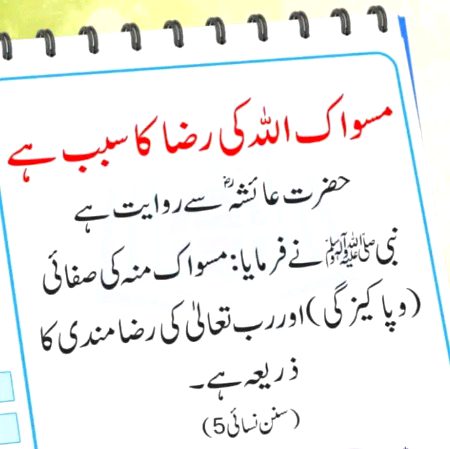 مسواک اللہ کی رضا کا سبب ہے
حضرت عائشہؓ سے روایت ہے
نبی ﷺ نے فرمایا: مسواک منہ کی صفائی
(و پاکیزگی) اور رب تعالیٰ کی رضا مندی کا
ذریعہ ہے۔
(سنن نسائی 5)